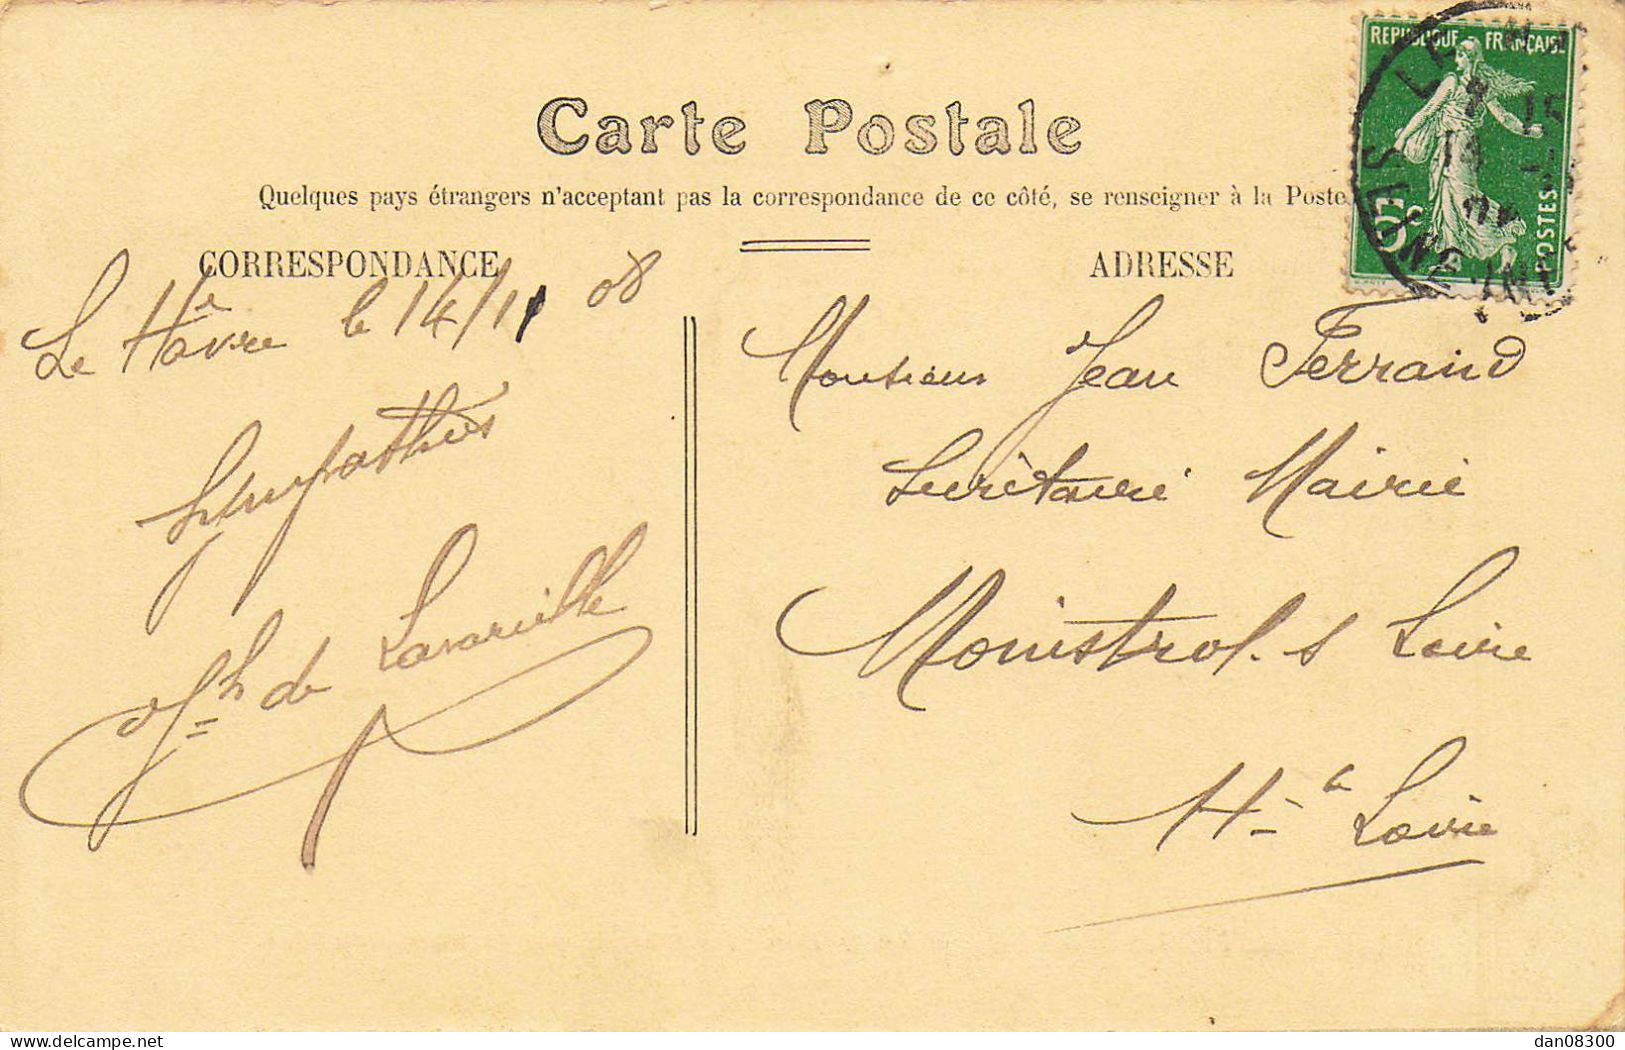 Carte Postale
Quelques pays étrangers n'acceptant pas la correspondance de ce côté, se renseigner à la Poste
CORRESPONDANCE
ADRESSE
REPUBLIQUE FRANÇAISE
5c
POSTES
LE
SEINE INF
Le Hâvre le 14/11 08
Sympathies
Jh de Lavareille
Monsieur Jean Ferrand
Secrétaire Mairie
Monistrol s Loire
Hte Loire
delcampe.net
dan08300